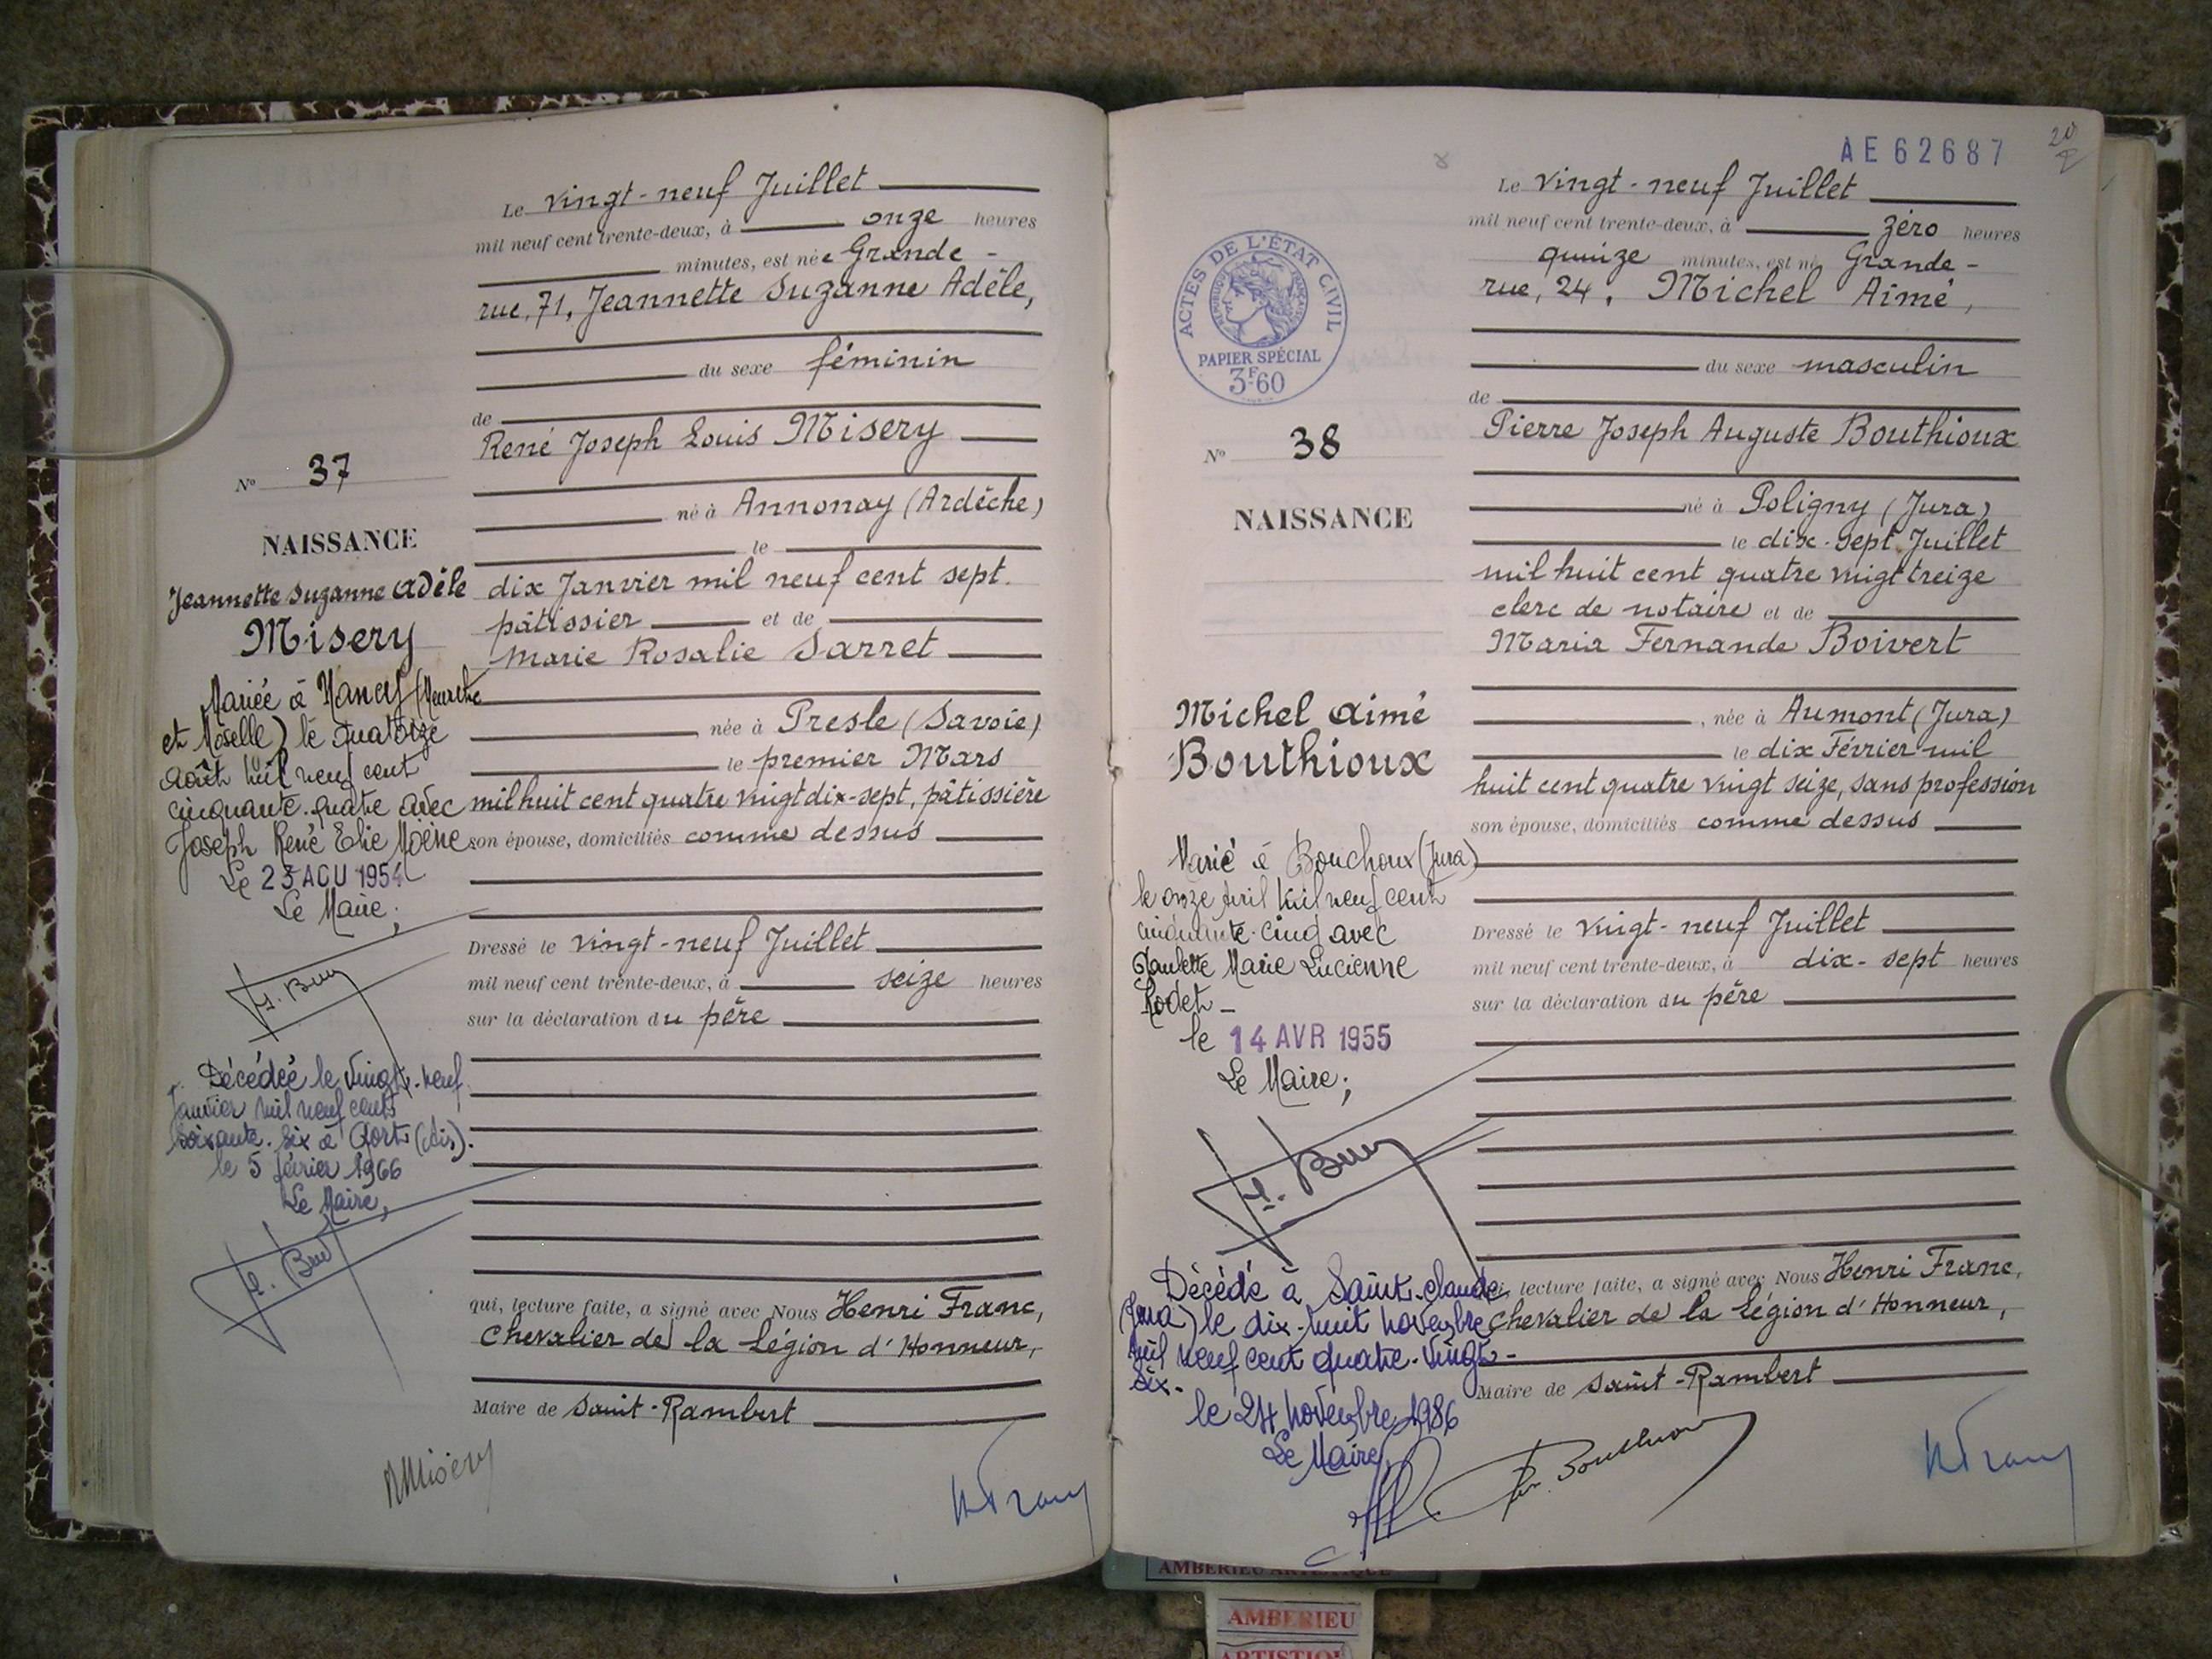 Le vingt-neuf Juillet
mil neuf cent trente-deux, à onze heures
minutes, est née Grande-
rue, 71, Jeannette Suzanne Adèle,
du sexe féminin
de
René Joseph Louis Misery
né à Annonay (Ardèche)
le
dix Janvier mil neuf cent sept.
pâtissier et de
Marie Rosalie Sarret
née à Presle (Savoie)
le premier Mars
mil huit cent quatre vingt dix-sept, pâtissière
son épouse, domiciliés comme dessus
Dressé le vingt-neuf Juillet
mil neuf cent trente-deux, à seize heures
sur la déclaration du père
qui, lecture faite, a signé avec Nous Henri Franc,
Chevalier de la Légion d'Honneur,
Maire de Saint-Rambert
RMisery
HFranc
N° 37
NAISSANCE
Jeannette Suzanne Adèle
Misery
Mariée à Nancy (Meurthe
et Moselle) le quatorze
Août mil neuf cent
cinquante-quatre avec
Joseph René Elie Moëne
Le 23 AOU 1954
Le Maire,
Décédée le vingt-neuf
Janvier mil neuf cent
soixante-six à (Ain).
le 5 février 1966
Le Maire,
AE62687
20
Le vingt-neuf Juillet
mil neuf cent trente-deux, à zéro heures
quinze minutes, est né Grande-
rue, 24, Michel Aimé,
du sexe masculin
de
Pierre Joseph Auguste Bouthioux
né à Poligny (Jura)
le dix-sept Juillet
mil huit cent quatre vingt treize
clerc de notaire et de
Maria Fernande Boivert
, née à Aumont (Jura)
le dix Février mil
huit cent quatre vingt seize, sans profession
son épouse, domiciliés comme dessus
Dressé le vingt-neuf Juillet
mil neuf cent trente-deux, à dix-sept heures
sur la déclaration du père
qui, lecture faite, a signé avec Nous Henri Franc,
Chevalier de la Légion d'Honneur,
Maire de Saint-Rambert
Bouthioux
HFranc
ACTES DE L'ÉTAT CIVIL
RÉPUBLIQUE FRANÇAISE
PAPIER SPÉCIAL
3F60
N° 38
NAISSANCE
Michel Aimé
Bouthioux
Marié à Bouchoux (Jura)
le onze Avril mil neuf cent
cinquante-cinq avec
Paulette Marie Lucienne
Rodet-
le 14 AVR 1955
Le Maire;
Décédé à Saint-Claude
(Jura) le dix-huit novembre
mil neuf cent quatre-vingt-
six.
le 24 novembre 1986
Le Maire,
AMBERIEU ARTISTIQUE
AMBERIEU
ARTISTIQUE